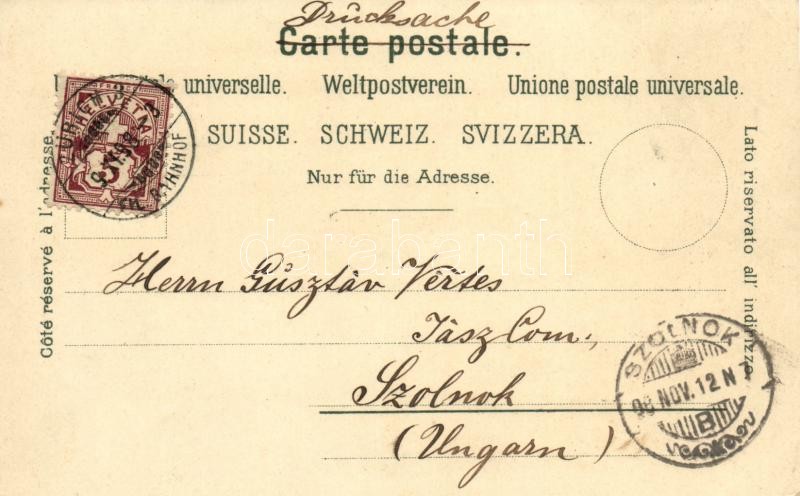 Drucksache
Carte postale.
universelle. Weltpostverein. Unione postale universale.
SUISSE. SCHWEIZ. SVIZZERA.
Nur für die Adresse.
Côté réservé à l'adresse.
Lato riservato all' indirizzo.
Herrn Gusztáv Vértes
Jász Com.,
Szolnok
(Ungarn)
SZOLNOK
98 NOV. 12 N 7
B
darabanth